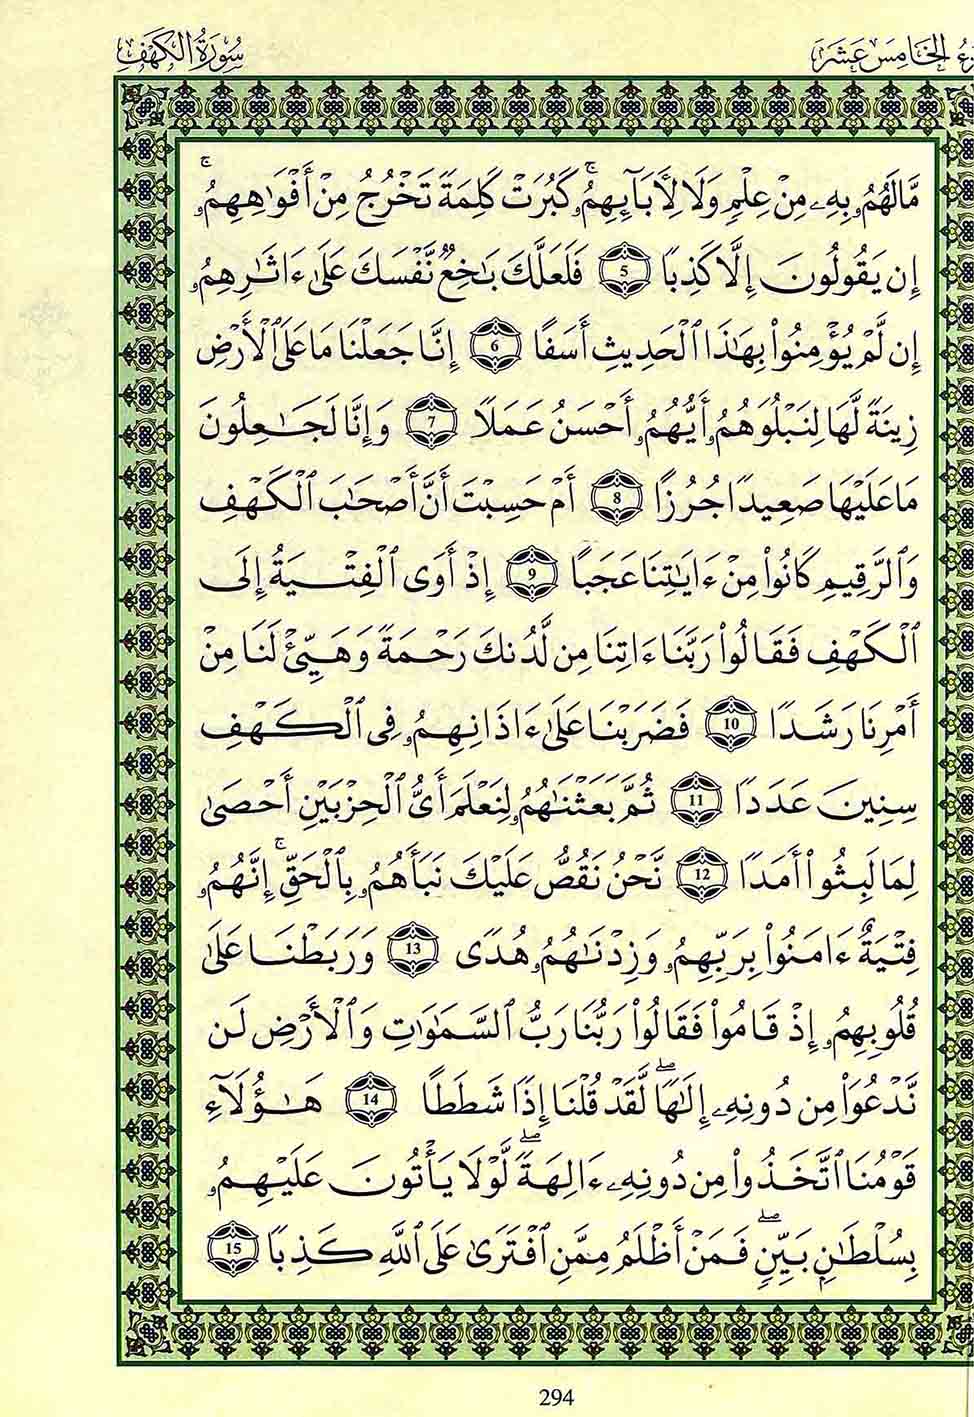 الجزء الخامس عشر سورة الكهف
مَّا لَهُمُۥ بِهِۦ مِنْ عِلْمٍ وَلَا لِأٓبَآئِهِمُۥۚ كَبُرَتْ كَلِمَةً تَخْرُجُ مِنْ أَفْوَٰهِهِمُۥۚ
إِن يَقُولُونَ إِلَّا كَذِبًا 5 فَلَعَلَّكَ بَٰخِعٌ نَّفْسَكَ عَلَىٰ ءَاثَٰرِهِمُۥ
إِن لَّمْ يُؤْمِنُوا۟ بِهَٰذَا ٱلْحَدِيثِ أَسَفًا 6 إِنَّا جَعَلْنَا مَا عَلَى ٱلْأَرْضِ
زِينَةً لَّهَا لِنَبْلُوَهُمُۥ أَيُّهُمُۥ أَحْسَنُ عَمَلًا 7 وَإِنَّا لَجَٰعِلُونَ
مَا عَلَيْهَا صَعِيدًا جُرُزًا 8 أَمْ حَسِبْتَ أَنَّ أَصْحَٰبَ ٱلْكَهْفِ
وَٱلرَّقِيمِ كَانُوا۟ مِنْ ءَايَٰتِنَا عَجَبًا 9 إِذْ أَوَى ٱلْفِتْيَةُ إِلَى
ٱلْكَهْفِ فَقَالُوا۟ رَبَّنَا ءَاتِنَا مِن لَّدُنكَ رَحْمَةً وَهَيِّئْ لَنَا مِنْ
أَمْرِنَا رَشَدًا 10 فَضَرَبْنَا عَلَىٰ ءَاذَانِهِمُۥ فِى ٱلْكَهْفِ
سِنِينَ عَدَدًا 11 ثُمَّ بَعَثْنَٰهُمُۥ لِنَعْلَمَ أَىُّ ٱلْحِزْبَيْنِ أَحْصَىٰ
لِمَا لَبِثُوٓا۟ أَمَدًا 12 نَّحْنُ نَقُصُّ عَلَيْكَ نَبَأَهُمُۥ بِٱلْحَقِّۚ إِنَّهُمُۥ
فِتْيَةٌ ءَامَنُوا۟ بِرَبِّهِمُۥ وَزِدْنَٰهُمُۥ هُدًى 13 وَرَبَطْنَا عَلَىٰ
قُلُوبِهِمُۥ إِذْ قَامُوا۟ فَقَالُوا۟ رَبُّنَا رَبُّ ٱلسَّمَٰوَٰتِ وَٱلْأَرْضِ لَن
نَّدْعُوَا۟ مِن دُونِهِۦ إِلَٰهًاۖ لَّقَدْ قُلْنَا إِذًا شَطَطًا 14 هَٰٓؤُلَآءِ
قَوْمُنَا ٱتَّخَذُوا۟ مِن دُونِهِۦ ءَالِهَةًۖ لَّوْلَا يَأْتُونَ عَلَيْهِمُۥ
بِسُلْطَٰنٍ بَيِّنٍۖ فَمَنْ أَظْلَمُ مِمَّنِ ٱفْتَرَىٰ عَلَى ٱللَّهِ كَذِبًا 15
294